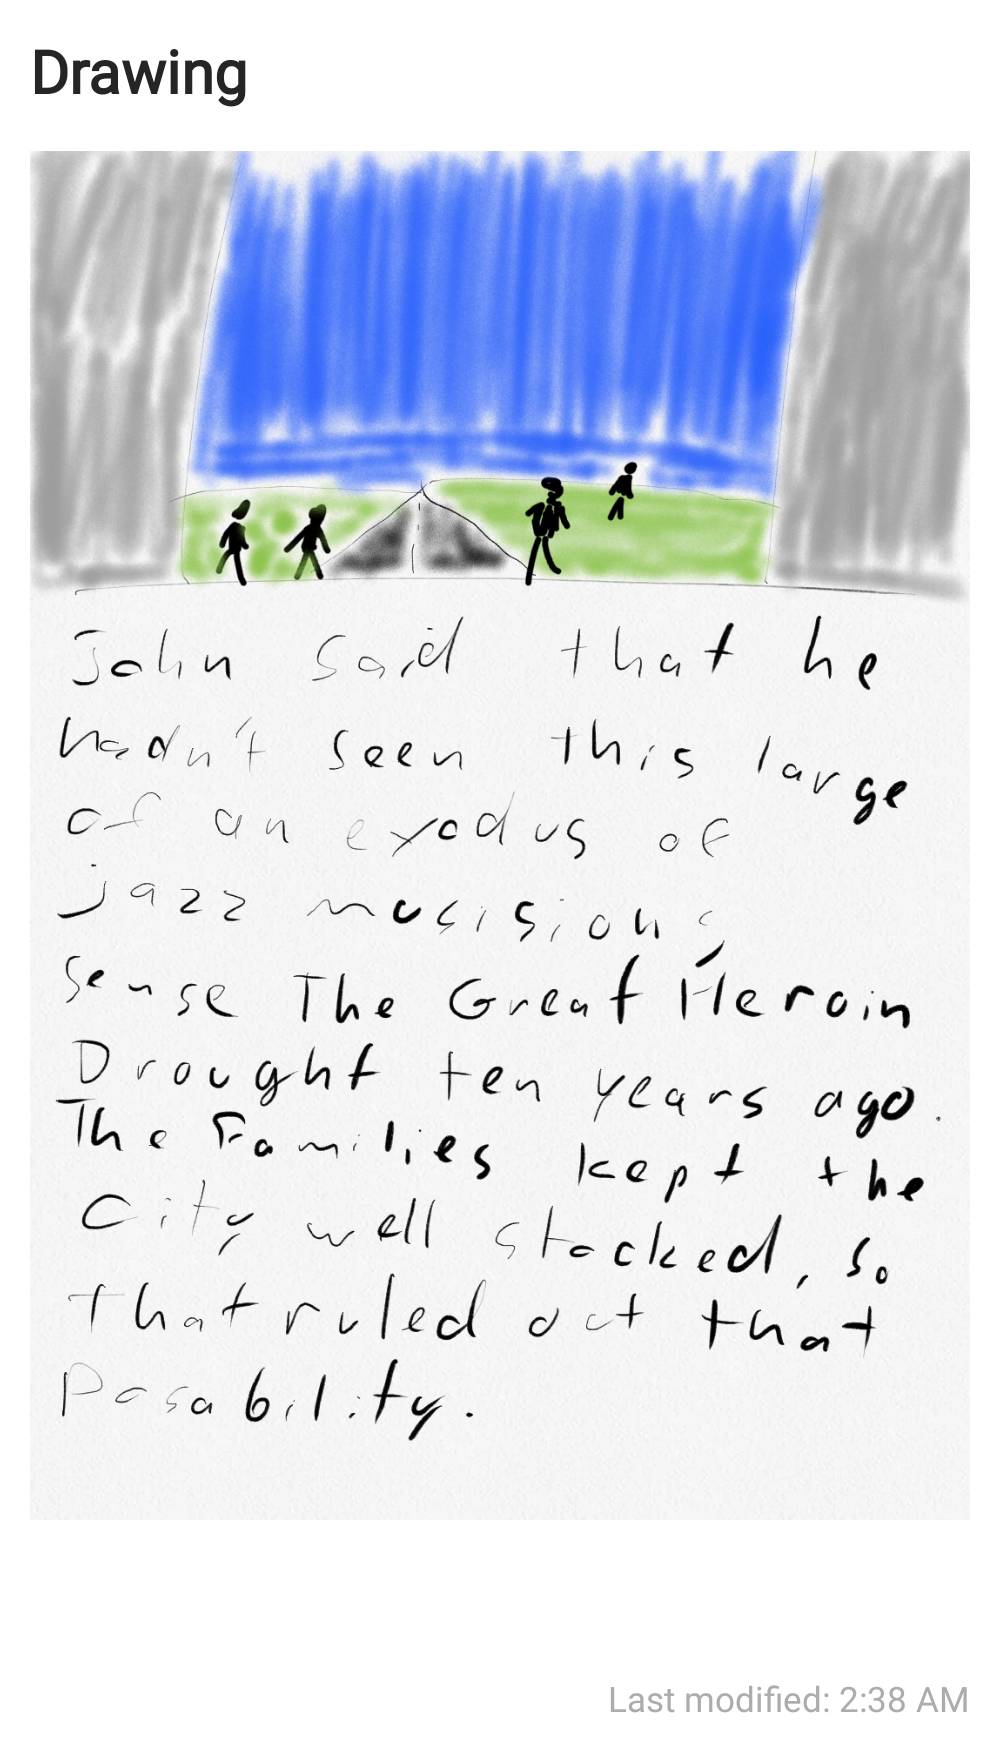 Drawing
John said that he
hadn't seen this large
of an exodus of
jazz musisions
sense The Great Heroin
Drought ten years ago.
The Families kept the
City well stocked, so
that ruled out that
Posability.
Last modified: 2:38 AM